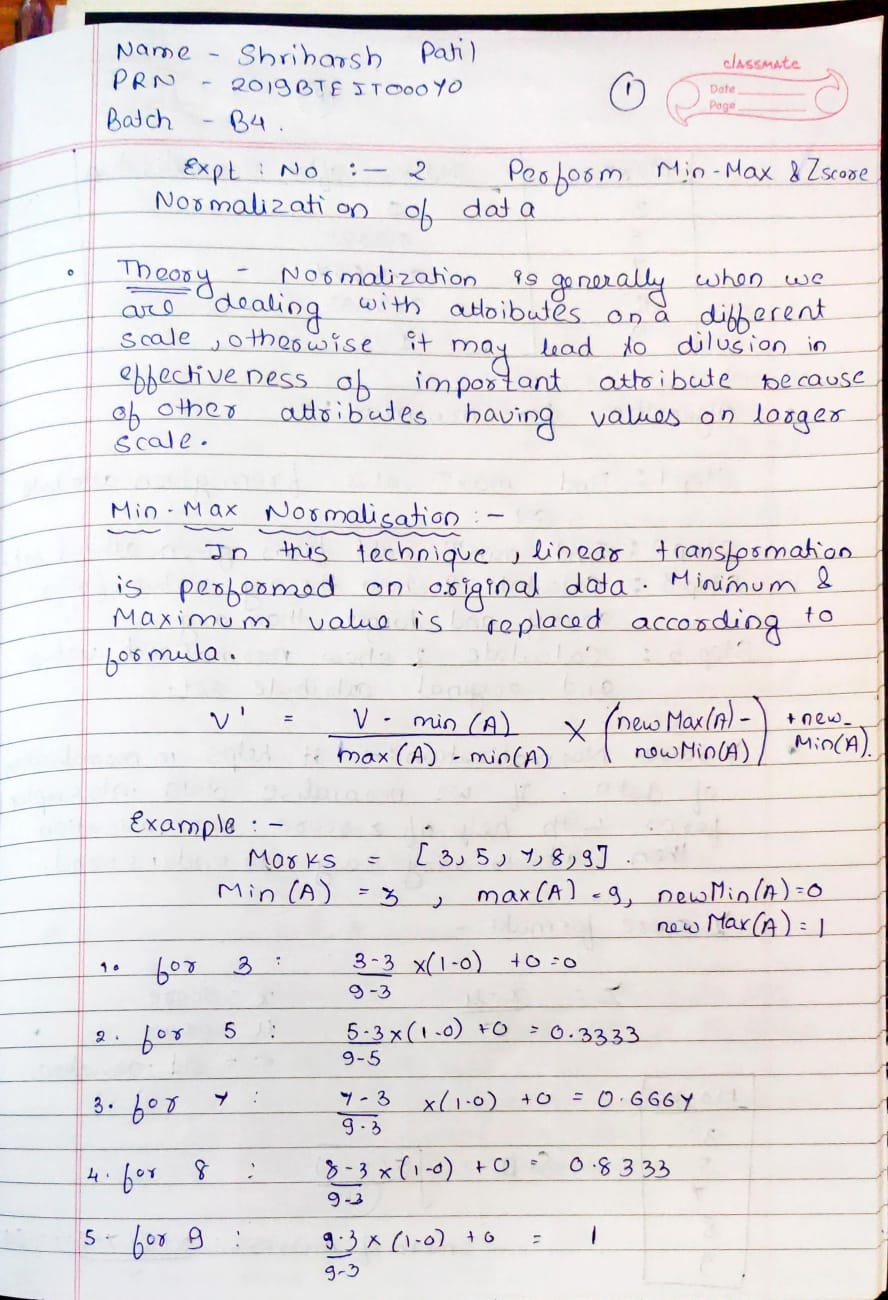 Name - Shriharsh Patil
PRN - 2019BTEIT00070
Batch - B4.
①
classmate
Date
Page
Expt : No :- 2 Perform Min-Max & Zscore
Normalization of data
Theory - Normalization is generally when we
are dealing with attributes on a different
scale, otherwise it may lead to dilusion in
effectiveness of important attribute because
of other attributes having values on larger
scale.
Min-Max Normalisation :-
In this technique, linear transformation
is performed on original data. Minimum &
Maximum value is replaced according to
formula.
V' = V - min(A) / max(A) - min(A) × (newMax(A) - newMin(A)) + new_Min(A).
Example :-
Marks = [3, 5, 7, 8, 9].
Min(A) = 3, max(A) = 9, newMin(A)=0
newMax(A) = 1
1. for 3 : 3-3 / 9-3 ×(1-0) +0=0
2. for 5 : 5-3 / 9-5 ×(1-0) +0 = 0.3333
3. for 7 : 7-3 / 9-3 ×(1-0) +0 = 0.6667
4. for 8 : 8-3 / 9-3 ×(1-0) +0 = 0.8333
5- for 9 : 9-3 / 9-3 × (1-0) +0 = 1